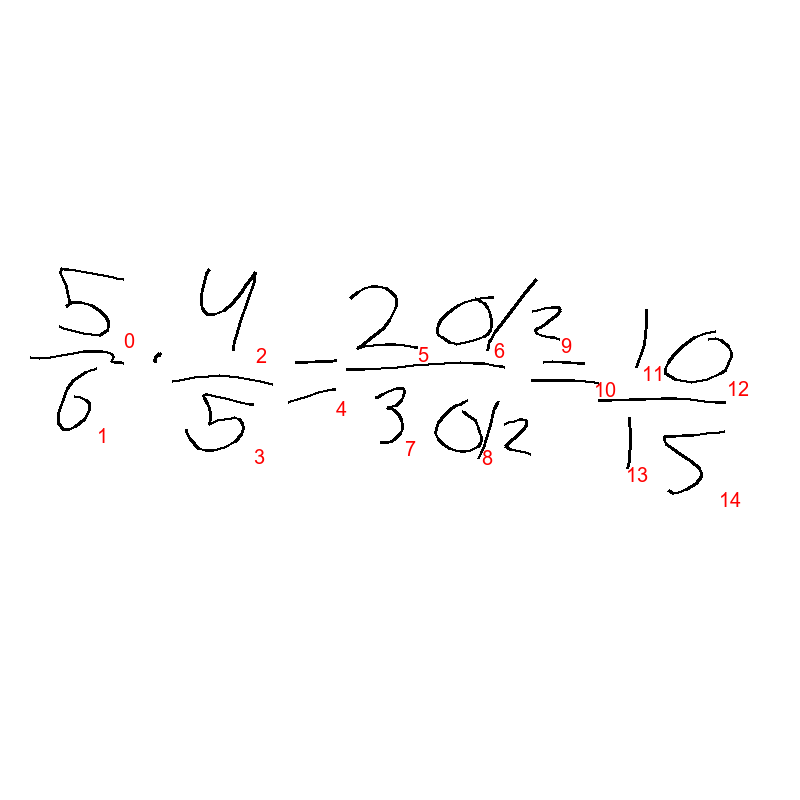 5/6 · 4/5 = 20/2 / 30/2 = 10/15
0 1 2 3 4 5 6 7 8 9 10 11 12 13 14